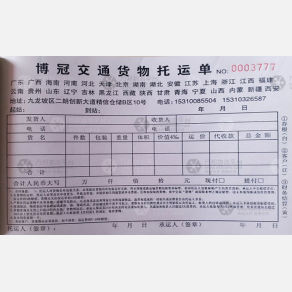 博冠交通货物托运单 NO. 0003777
广东 广西 海南 河南 河北 天津 北京 湖南 湖北 安徽 江苏 上海 浙江 江西 福建
云南 贵州 山东 辽宁 吉林 黑龙江 西藏 陕西 甘肃 青海 宁夏 山西 内蒙 新疆 西安
地址:九龙坡区二郎创新大道精信仓储B区10号 电话:15310085504 15310326587
起站: 到站: 年 月 日
发货人 收货人
电话 电话
货名 件数 包装 重量 体积 价值4‰ 运价 代收款 总金额
合计人民币大写 万 仟 佰 拾 元 现付□ 提付□
托运人(签章) 年 月 日 承运人(签章): 年 月 日
①存根(白) ②客户(红) ③财务结算(黄)